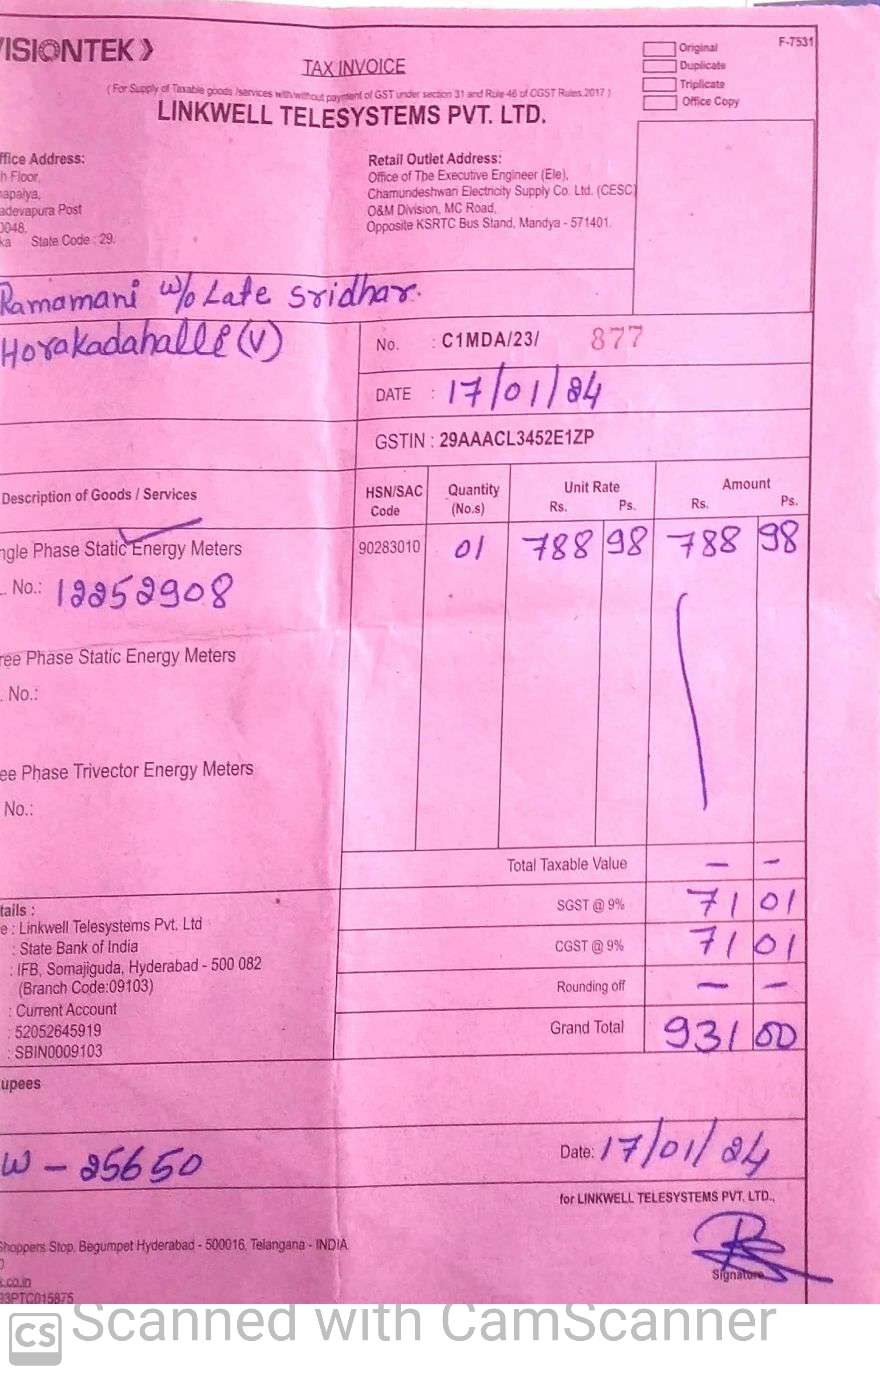 VISIONTEK
TAX INVOICE
Original
Duplicate
Triplicate
Office Copy
F-7531
( For Supply of Taxable goods /services with/without payment of GST under section 31 and Rule 46 of CGST Rules.2017 )
LINKWELL TELESYSTEMS PVT. LTD.
ffice Address:
h Floor,
apalya,
adevapura Post
0048,
ka State Code : 29.
Retail Outlet Address:
Office of The Executive Engineer (Ele),
Chamundeshwari Electricity Supply Co. Ltd. (CESC)
O&M Division, MC Road,
Opposite KSRTC Bus Stand, Mandya - 571401.
Ramamani w/o Late Sridhar.
Horakadahalli (V)
No. : C1MDA/23/ 877
DATE : 17/01/24
GSTIN : 29AAACL3452E1ZP
Description of Goods / Services
HSN/SAC Code
Quantity (No.s)
Unit Rate Rs. Ps.
Amount Rs. Ps.
ngle Phase Static Energy Meters 90283010 01 788 98 788 98
. No.: 12252908
ree Phase Static Energy Meters
. No.:
ee Phase Trivector Energy Meters
No.:
Total Taxable Value - -
SGST @ 9% 71 01
CGST @ 9% 71 01
Rounding off - -
Grand Total 931 00
tails :
e : Linkwell Telesystems Pvt. Ltd
: State Bank of India
: IFB, Somajiguda, Hyderabad - 500 082
(Branch Code:09103)
: Current Account
: 52052645919
: SBIN0009103
upees
W - 25650
Date: 17/01/24
for LINKWELL TELESYSTEMS PVT. LTD.,
Signature
Shoppers Stop, Begumpet Hyderabad - 500016, Telangana - INDIA
0
k.co.in
93PTC015875
CS Scanned with CamScanner